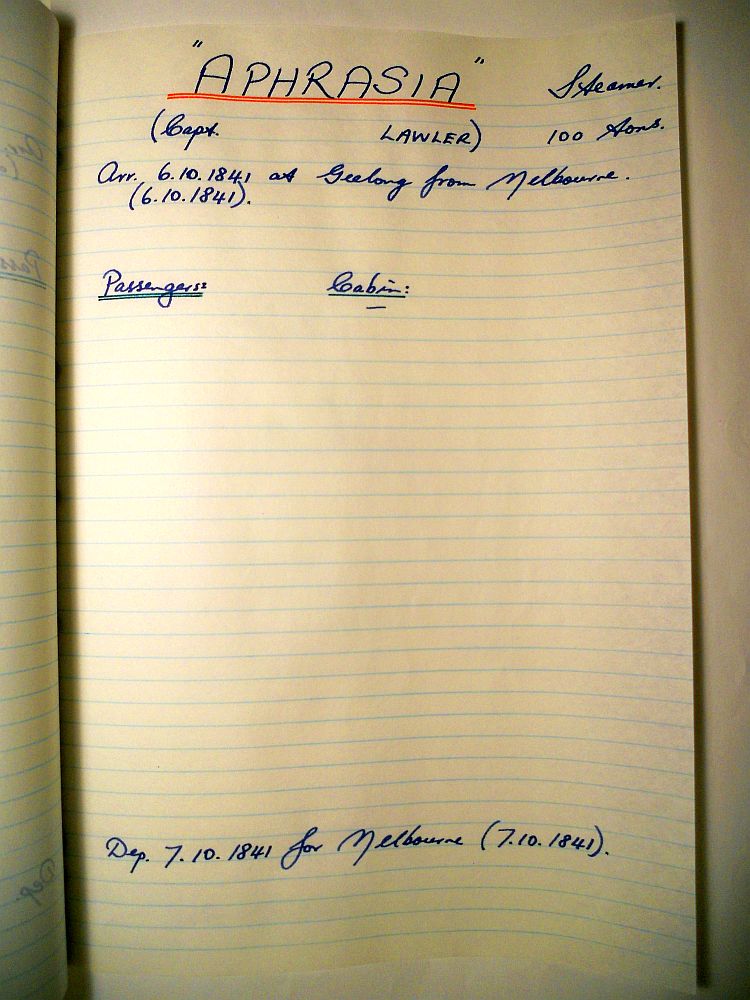 "APHRASIA" Steamer.
(Capt. LAWLER) 100 tons.
Arr. 6.10.1841 at Geelong from Melbourne.
(6.10.1841).
Passengers: Cabin:
—
Dep. 7.10.1841 for Melbourne (7.10.1841).